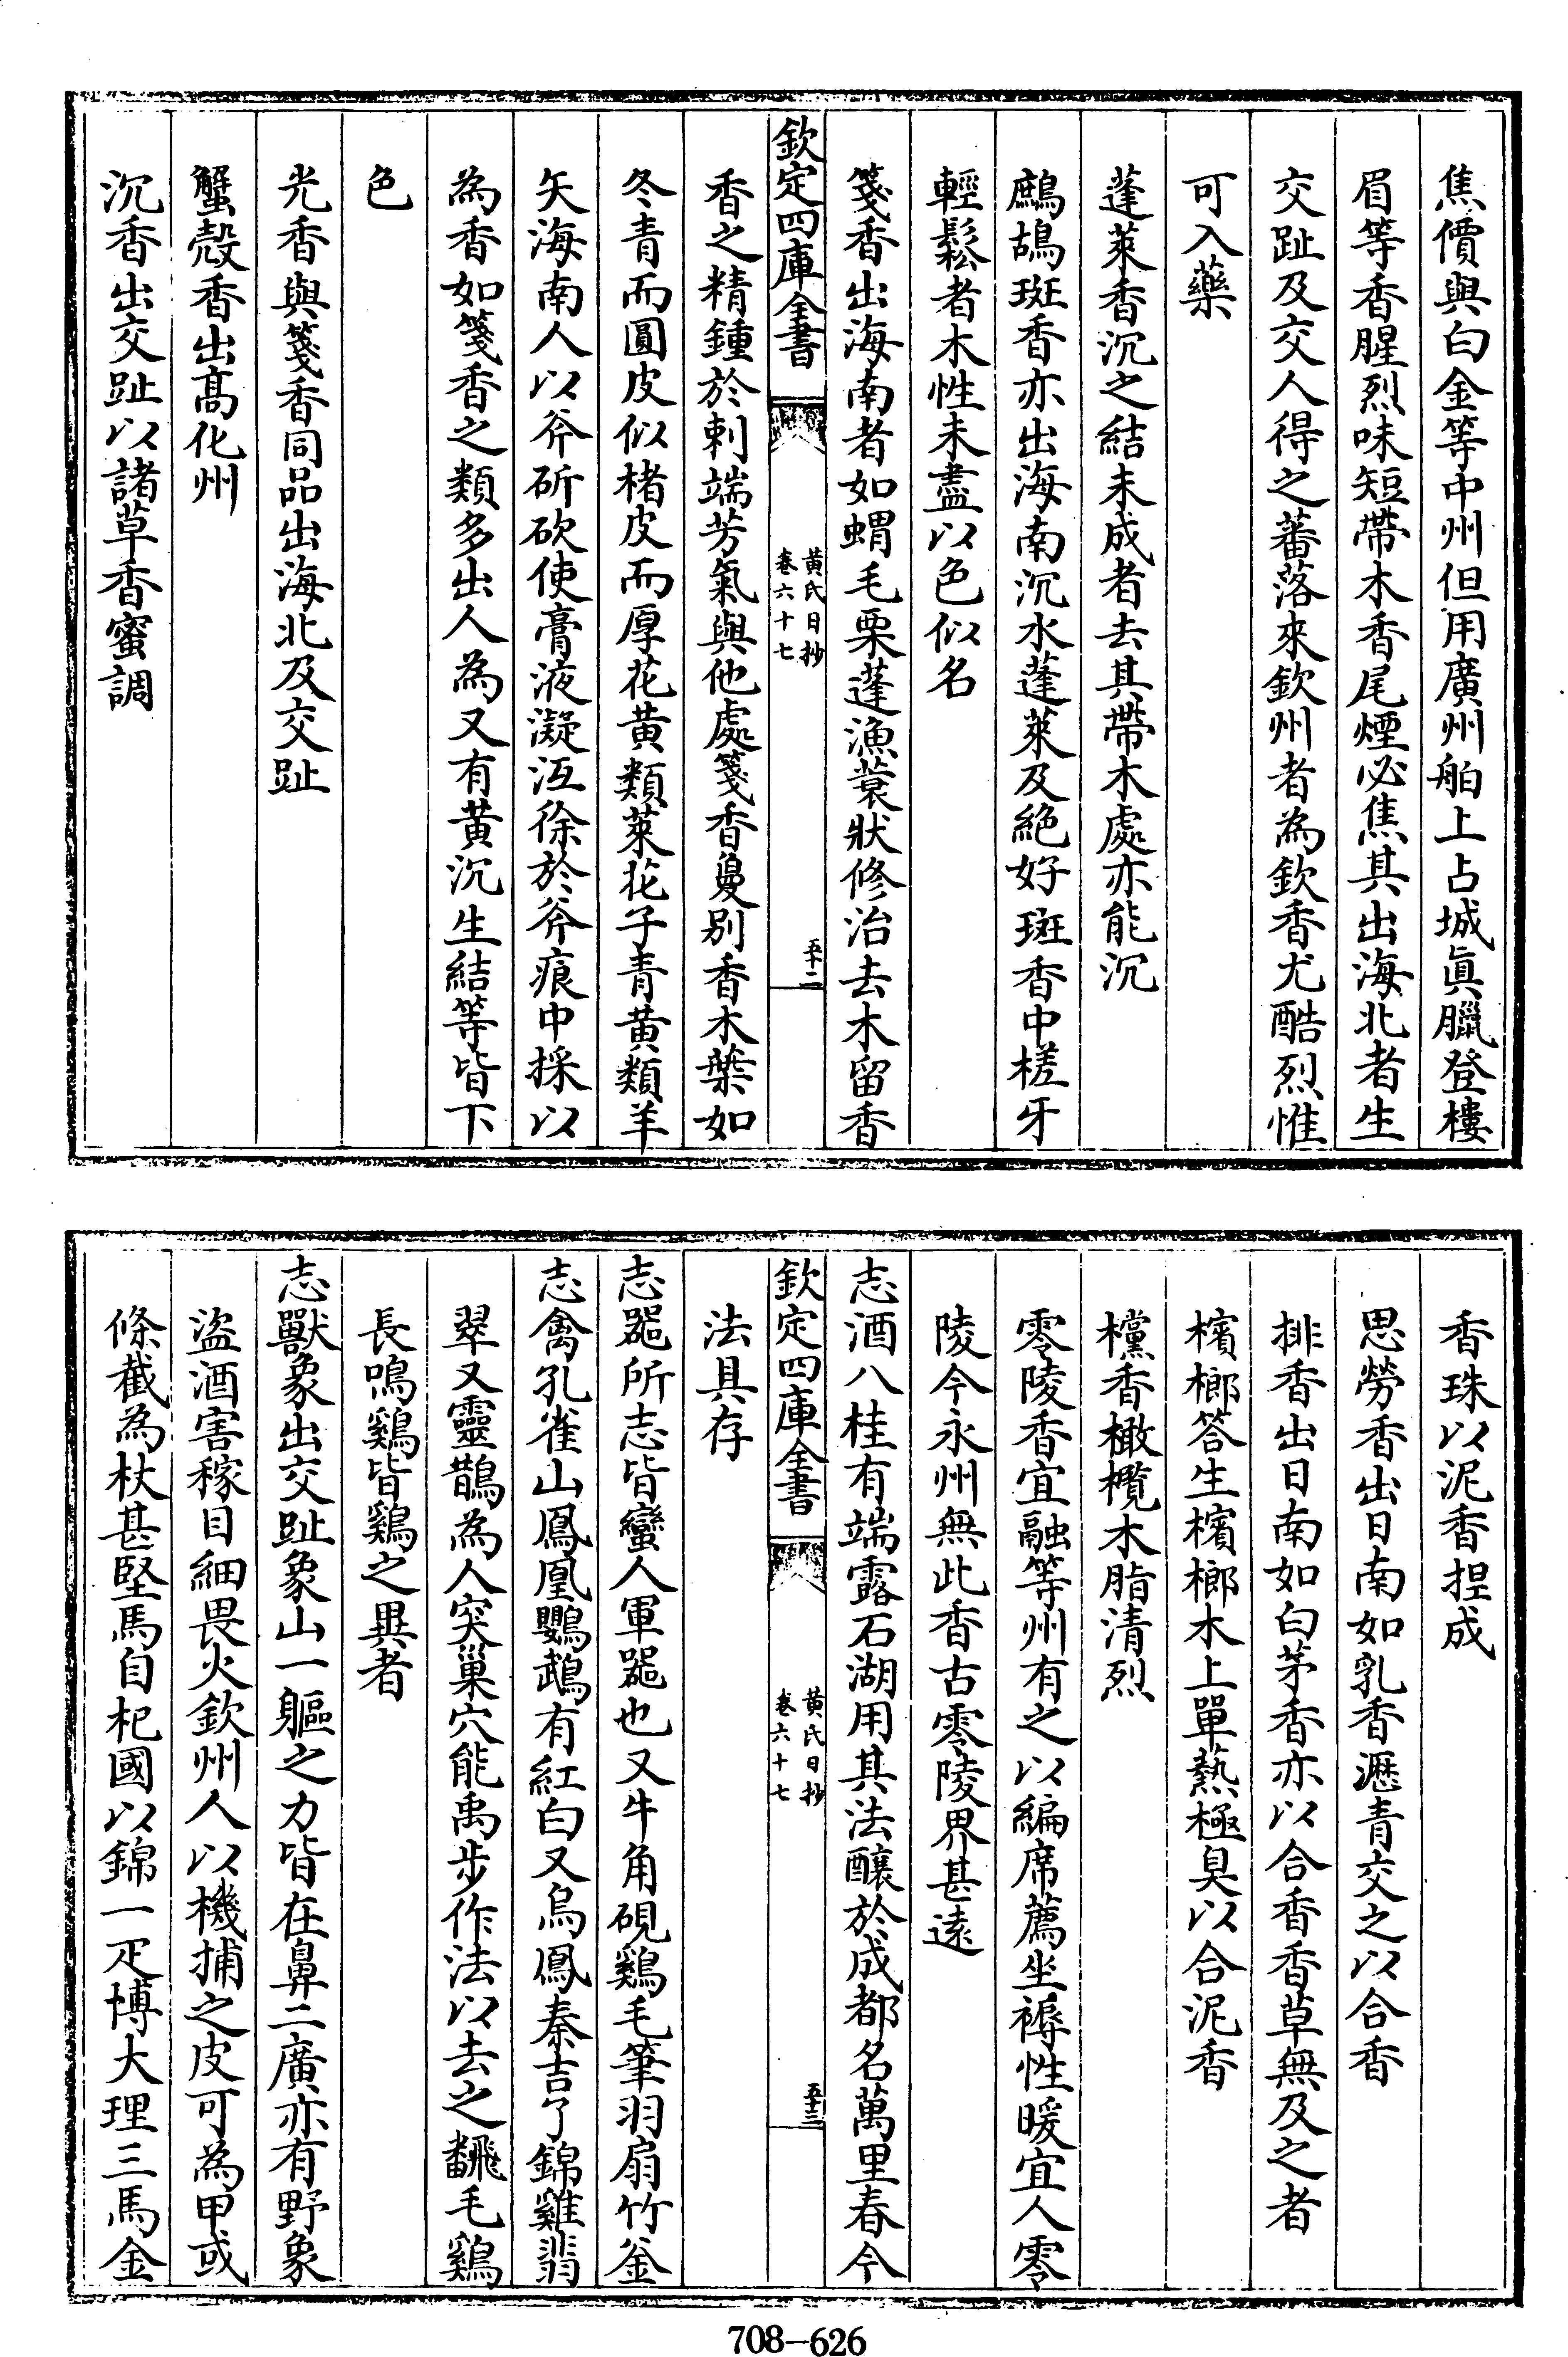 焦價與白金等中州但用廣州舶上占城眞臘登樓
眉等香腥烈味短帶木香尾煙必焦其出海北者生
交趾及交人得之蕃落來欽州者為欽香尤酷烈惟
可入藥
蓬萊香沉之結未成者去其帶木處亦能沉
鷓鴣斑香亦出海南沉水蓬萊及絕好斑香中槎牙
輕鬆者木性未盡以色似名
箋香出海南者如蝟毛栗蓬漁蓑狀修治去木留香
欽定四庫全書
黃氏日抄
卷六十七
五十二
香之精鍾於刺端芳氣與他處箋香夐別香木葉如
冬青而圓皮似楮皮而厚花黃類菜花子青黃類羊
矢海南人以斧斫砍使膏液凝沍徐於斧痕中採以
為香如箋香之類多出人為又有黃沉生結等皆下
色
光香與箋香同品出海北及交趾
蟹殼香出高化州
沉香出交趾以諸草香蜜調
香珠以泥香捏成
思勞香出日南如乳香瀝青交之以合香
排香出日南如白茅香亦以合香香草無及之者
檳榔苔生檳榔木上單爇極臭以合泥香
欓香橄欖木脂清烈
零陵香宜融等州有之以編席薦坐褥性暖宜人零
陵今永州無此香古零陵界甚遠
志酒八桂有端露石湖用其法釀於成都名萬里春今
欽定四庫全書
黃氏日抄
卷六十七
五十三
法具存
志器所志皆蠻人軍器也又牛角硯鷄毛筆羽扇竹釜
志禽孔雀山鳳凰鸚鵡有紅白又烏鳳秦吉了錦雞翡
翠又靈鵲為人突巢穴能禹步作法以去之飜毛鷄
長鳴鷄皆鷄之異者
志獸象出交趾象山一軀之力皆在鼻二廣亦有野象
盜酒害稼目細畏火欽州人以機捕之皮可為甲或
條截為杖甚堅馬自杞國以錦一疋博大理三馬金
708-626